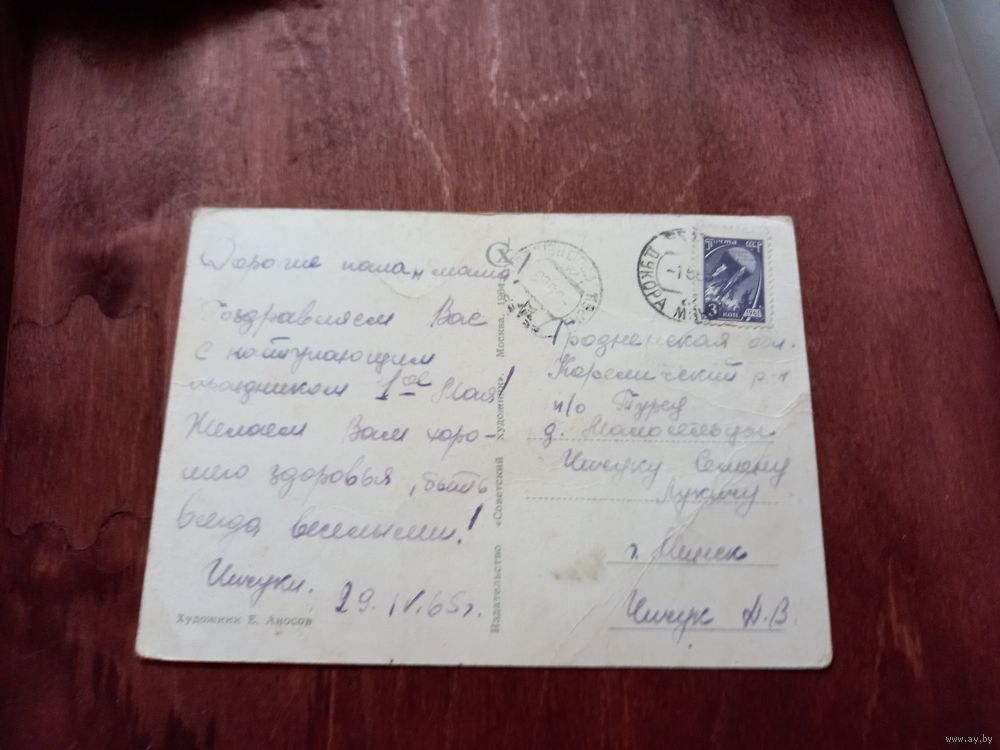 Дорогие папа и мама!
Поздравляем Вас
с наступающим
праздником 1ое Мая!
Желаем Вам хоро-
шего здоровья, быть
всегда веселыми!
29.IV.65г.
Художник Е. Аносов
Издательство «Советский художник». Москва. 1964
Почта СССР
3 коп
1961
Гродненская обл.
Кореличский р-н
п/о Турец
д. Малосельцы
Семену
Лукичу
г. Минск
www.ay.by